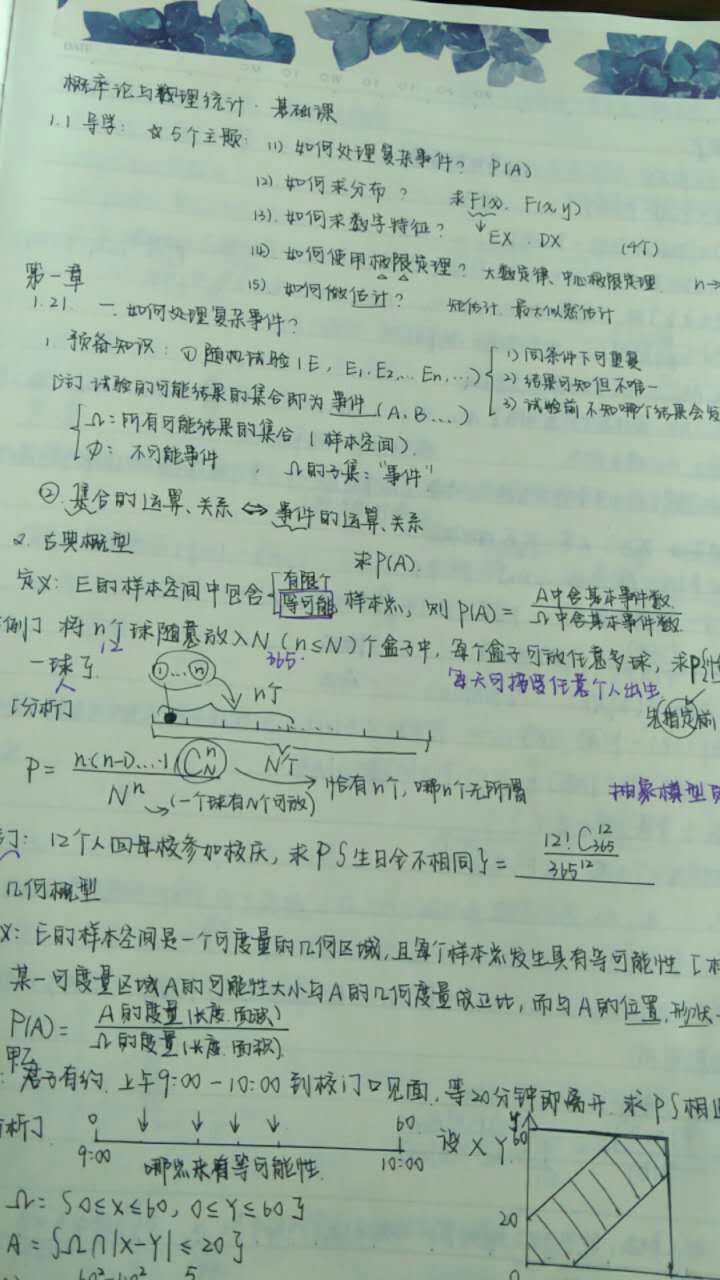 概率论与数理统计·基础课
1.1 导学: ☆5个主题: (1) 如何处理复杂事件? P(A)
(2) 如何求分布? 求F(x). F(x,y)
(3). 如何求数字特征? EX . DX (4个)
(4). 如何使用极限定理? 大数定律、中心极限定理 n→
(5) 如何做估计? 矩估计 最大似然估计
第一章
1.21. 一. 如何处理复杂事件?
1. 预备知识: ① 随机试验(E, E₁, E₂... En, ...) 1) 同条件下可重复
2) 结果可知但不唯一
3) 试验前不知哪个结果会发
试验的可能结果的集合即为事件(A、B...)
Ω: 所有可能结果的集合 (样本空间).
Φ: 不可能事件 Ω的子集: "事件"
②. 集合的运算、关系 ⇔ 事件的运算、关系
2. 古典概型 求P(A).
定义: E的样本空间中包含 有限个 等可能 样本点, 则 P(A) = A中含基本事件数 / Ω中含基本事件数
例] 将n个球随意放入N (n≤N) 个盒子中, 每个盒子可放任意多球, 求P{
12 365 每天可接受任意个人出生
一球}.
人
[分析] ①...ⓝ n个 N个 先指定前
P = n·(n-1)...·1·C_N^n / N^n 恰有n个, 哪n个无所谓
(一个球有N个可放) 抽象模型
12个人回母校参加校庆, 求P{生日全不相同} = 12! C_365^12 / 365^12
几何概型
义: E的样本空间是一个可度量的几何区域, 且每个样本点发生具有等可能性 [
某一可度量区域A的可能性大小与A的几何度量成正比, 而与A的位置, 形状
P(A) = A的度量(长度.面积) / Ω的度量(长度.面积)
甲乙
: 君子有约. 上午9:00-10:00到校门口见面, 等20分钟即离开. 求P{相
析] 0 60 设 X Y. y 60
9:00 哪点来有等可能性. 10:00
Ω = {0≤X≤60, 0≤Y≤60}
20
A = {Ω∩|X-Y|≤20}
0
60²-40² 5